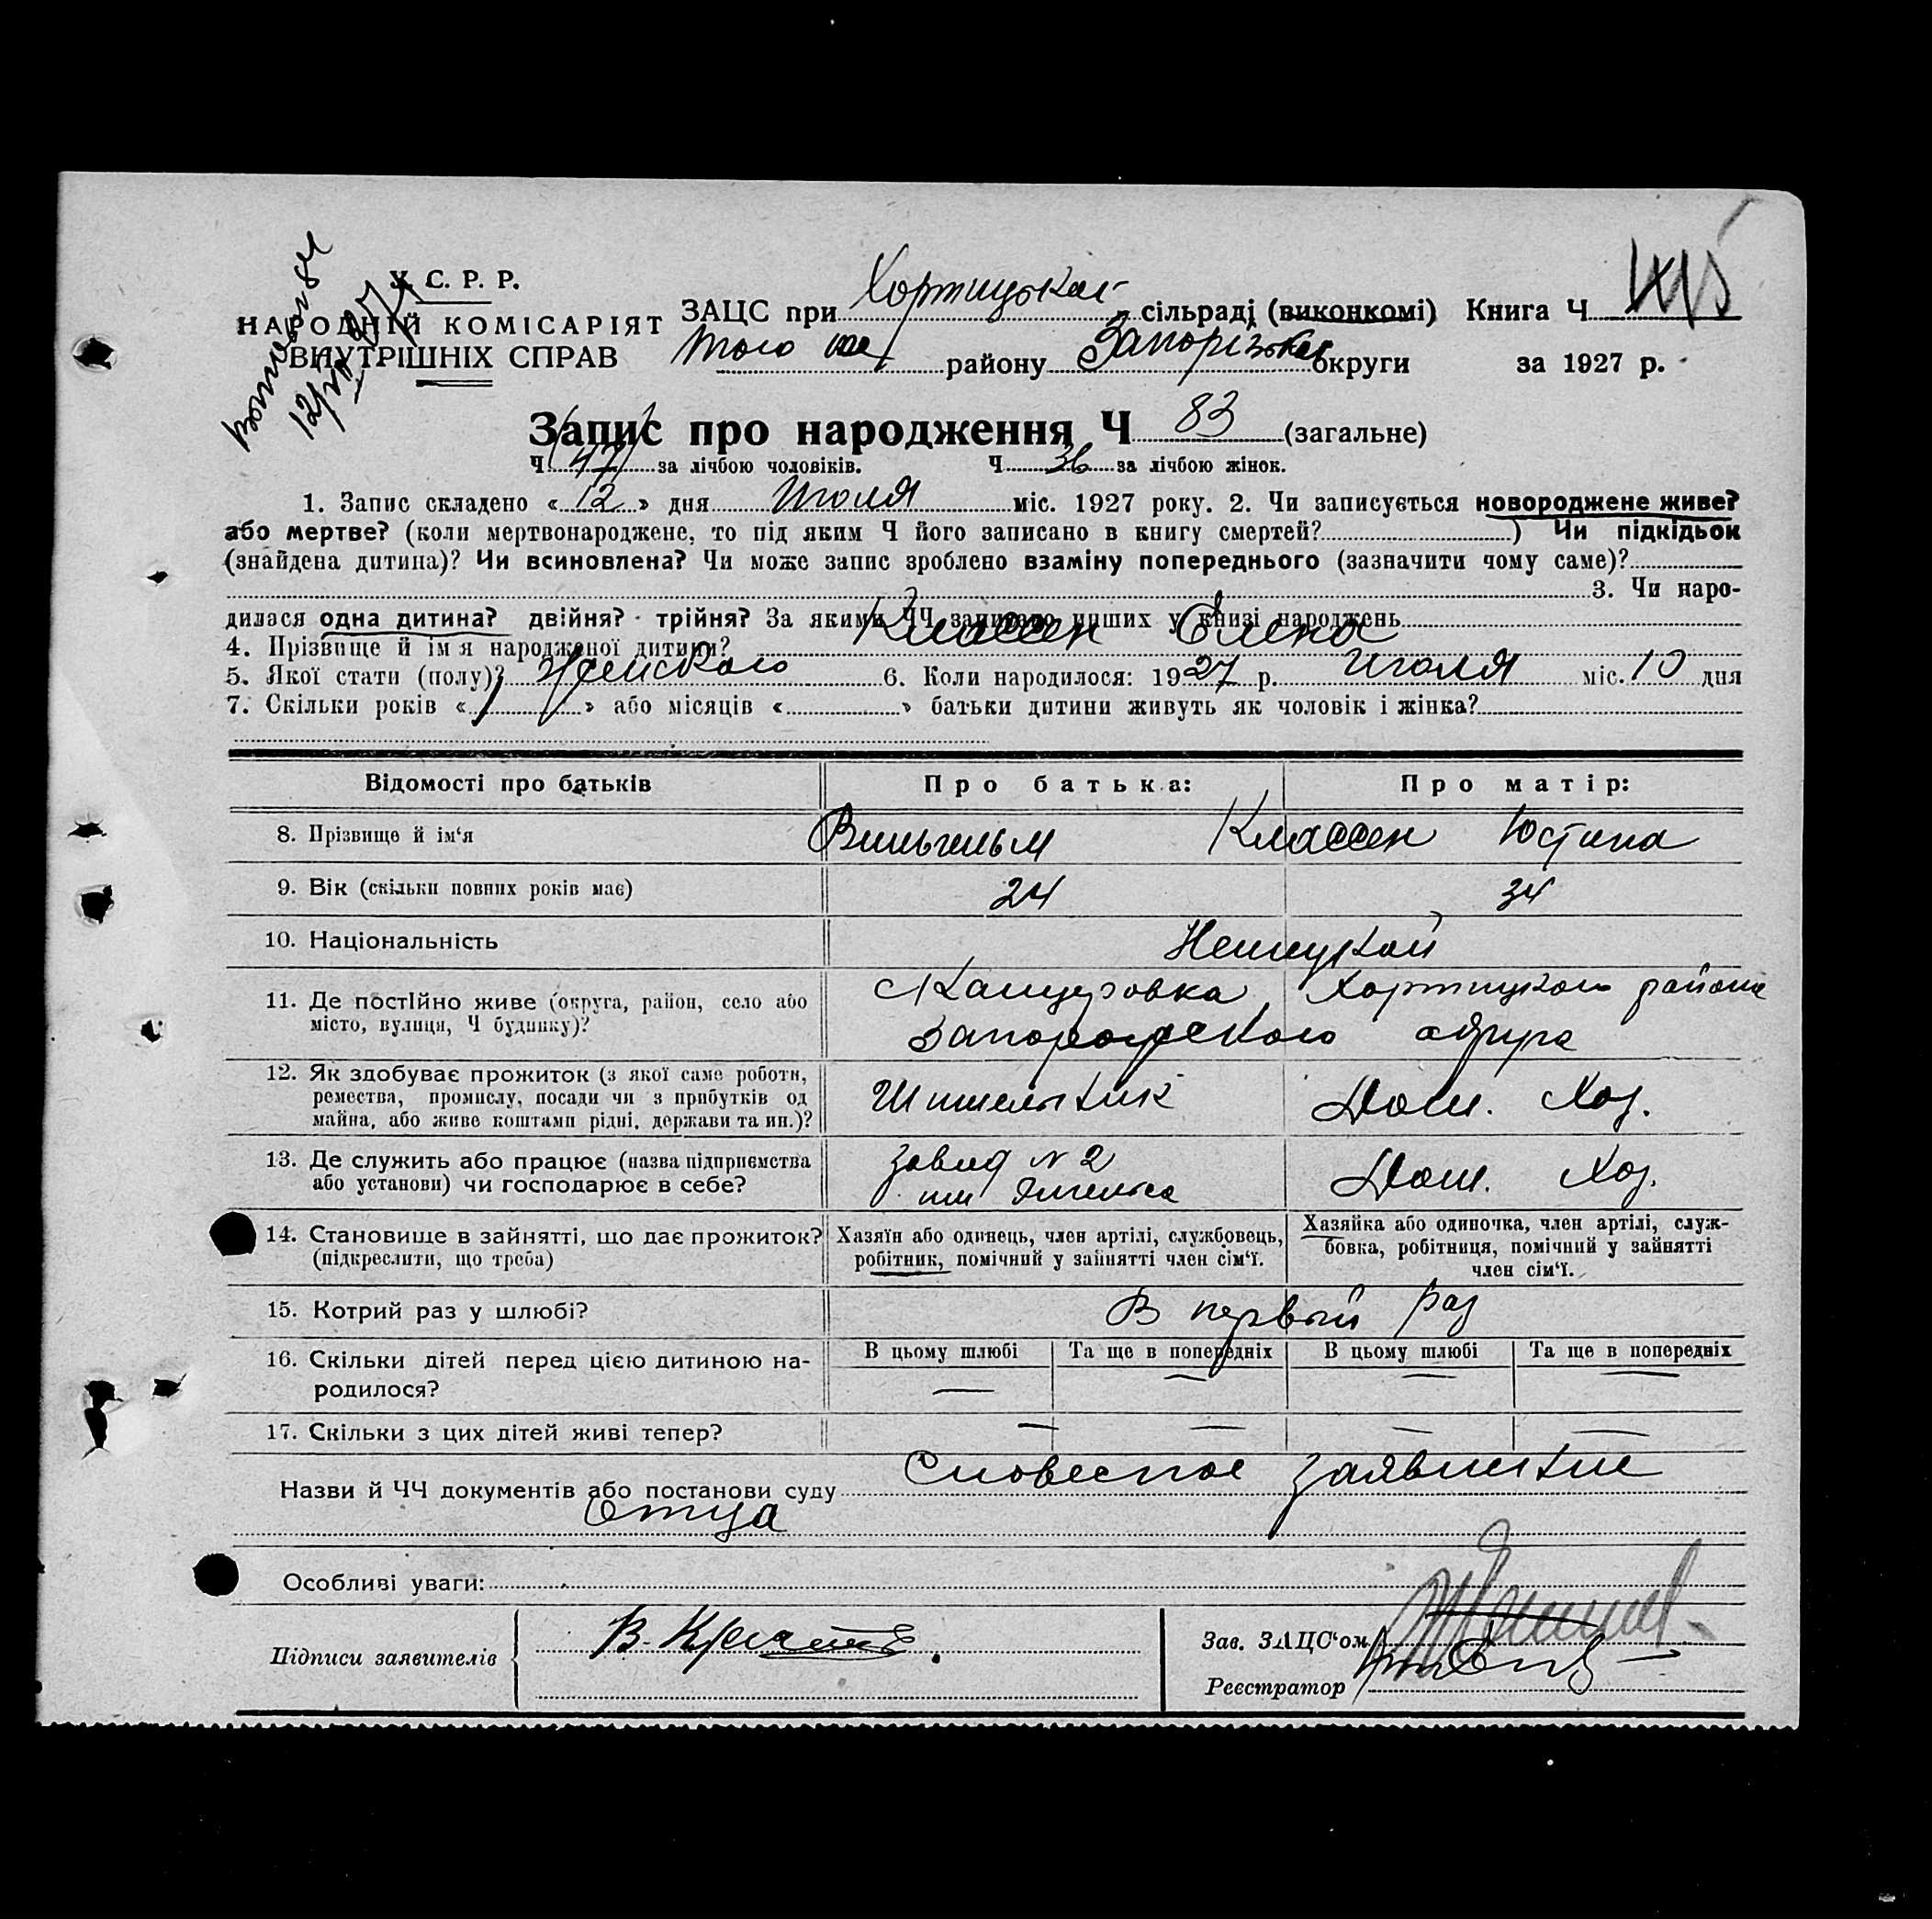 У. С. Р. Р.
НАРОДНІЙ КОМІСАРІЯТ
ВНУТРІШНІХ СПРАВ
ЗАЦС при Хортицькой сільраді (виконкомі) Книга Ч
того же району Запорізької округи за 1927 р.
Запис про народження Ч 83 (загальне)
Ч (47) за лічбою чоловіків. Ч 36 за лічбою жінок.
1. Запис складено « 12 » дня Июля міс. 1927 року. 2. Чи записується новороджене живе?
або мертве? (коли мертвонароджене, то під яким Ч його записано в книгу смертей? ) Чи підкідьок
(знайдена дитина)? Чи всиновлена? Чи може запис зроблено взаміну попереднього (зазначити чому саме)?
3. Чи наро-
дилася одна дитина? двійня? трійня? За якими ЧЧ записано инших у книзі народжень
4. Прізвище й ім'я народженої дитини? Классен Елена
5. Якої стати (полу)? Женского 6. Коли народилося: 1927 р. Июля міс. 10 дня
7. Скільки років « 1 » або місяців « » батьки дитини живуть як чоловік і жінка?
Відомості про батьків Про батька: Про матір:
8. Прізвище й ім'я Вильгельм Классен Юстина
9. Вік (скільки повних років має) 24 34
10. Національність Немецкой
11. Де постійно живе (округа, район, село або
місто, вулиця, Ч будинку)?
Канцеровка, Хортицкого района
Запорожского округа
12. Як здобуває прожиток (з якої саме роботи,
ремества, промислу, посади чи з прибутків од
майна, або живе коштами рідні, держави та ин.)?
Шишельник Дом. Хоз.
13. Де служить або працює (назва підприємства
або установи) чи господарює в себе?
Завод N 2
им Энгельса
Дом. Хоз.
14. Становище в зайнятті, що дає прожиток?
(підкреслити, що треба)
Хазяїн або одинець, член артілі, службовець,
робітник, помічний у зайнятті член сім'ї.
Хазяйка або одиночка, член артілі, служ-
бовка, робітниця, помічний у зайнятті
член сім'ї.
15. Котрий раз у шлюбі? В первый раз
16. Скільки дітей перед цією дитиною на-
родилося?
В цьому шлюбі Та ще в попередніх В цьому шлюбі Та ще в попередніх
— — — —
17. Скільки з цих дітей живі тепер? — — — —
Назви й ЧЧ документів або постанови суду Словесное заявление
Отца
Особливі уваги:
Підписи заявителів В.
Зав. ЗАЦС'ом
Реєстратор